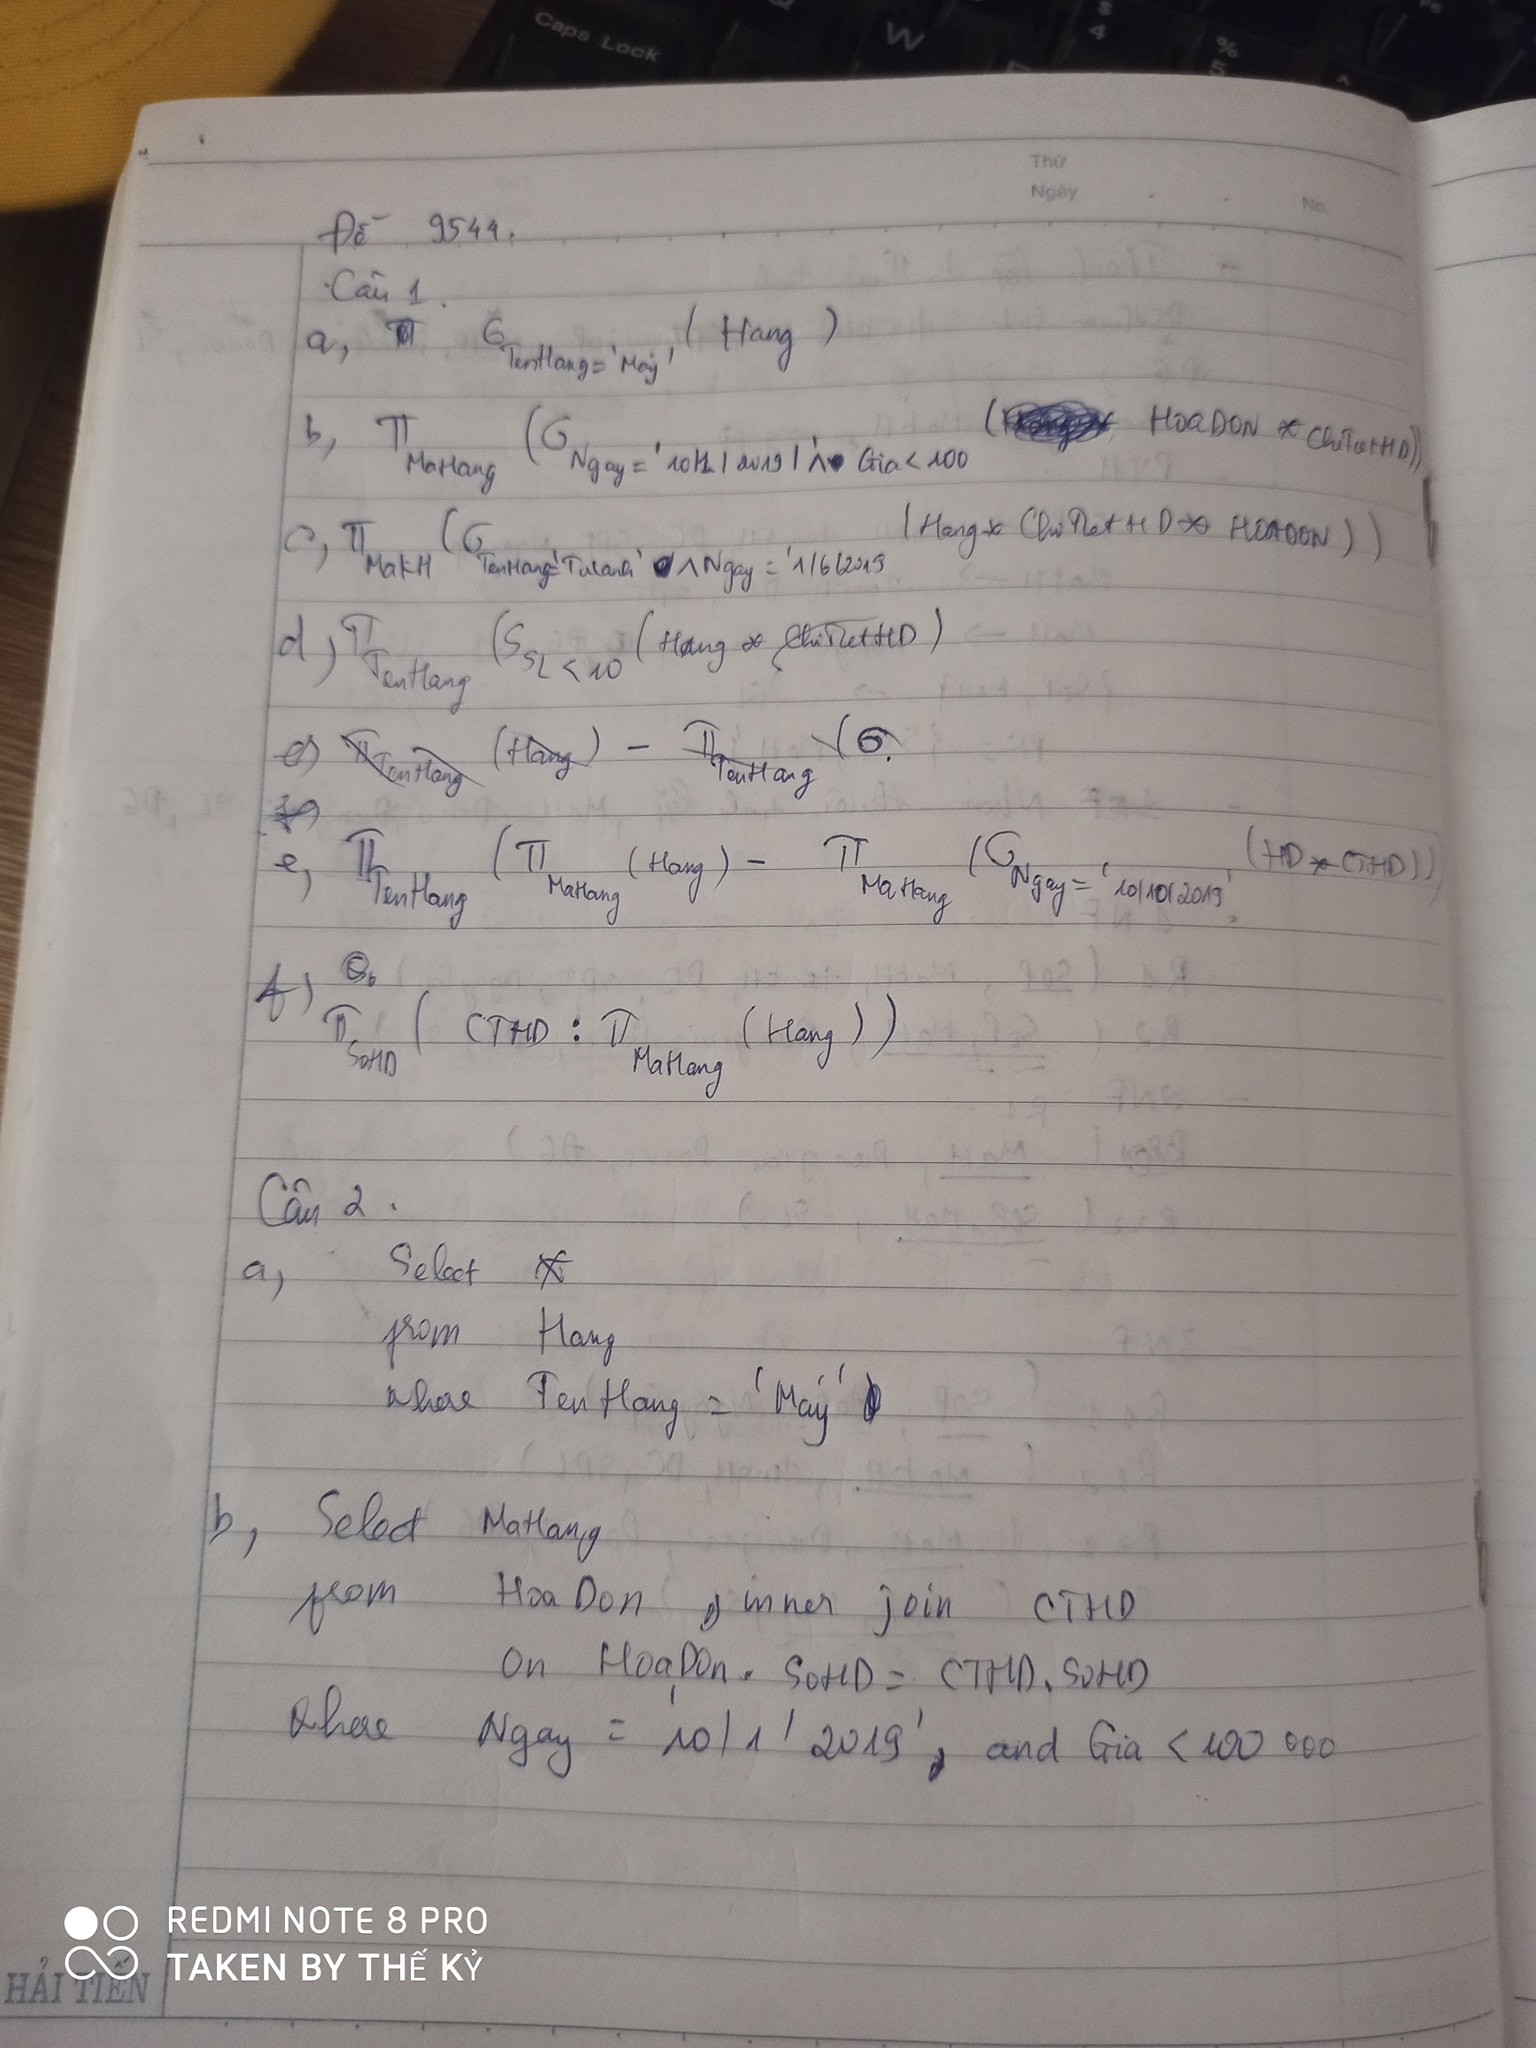 Caps Lock
W
$
4
%
5
Thứ
Ngày
No.
Đề 9544.
Câu 1.
a, π σ TenHang = 'Máy' (Hang)
b, π MaHang (σ Ngay = '10/1/2019' ∧ Gia < 100 (HOADON * ChiTietHD))
c, π MaKH (σ TenHang='Tulanh' ∧ Ngay = '1/6/2019 (Hang * ChiTietHD * HOADON))
d, π TenHang (σ SL < 10 (Hang * ChiTietHD)
e) π TenHang (Hang) - π TenHang (σ
e, π TenHang (π MaHang (Hang) - π MaHang (σ Ngay = '10/10/2019' (HD * CTHD))
f)
π SoHD (CTHD : π MaHang (Hang))
Câu 2.
a, Select *
from Hang
where TenHang = 'Máy'
b, Select MaHang
from HoaDon inner join CTHD
on HoaDon.SoHD = CTHD.SoHD
where Ngay = '10/1/2019', and Gia < 100 000
REDMI NOTE 8 PRO
TAKEN BY THẾ KỶ
HẢI TIẾN